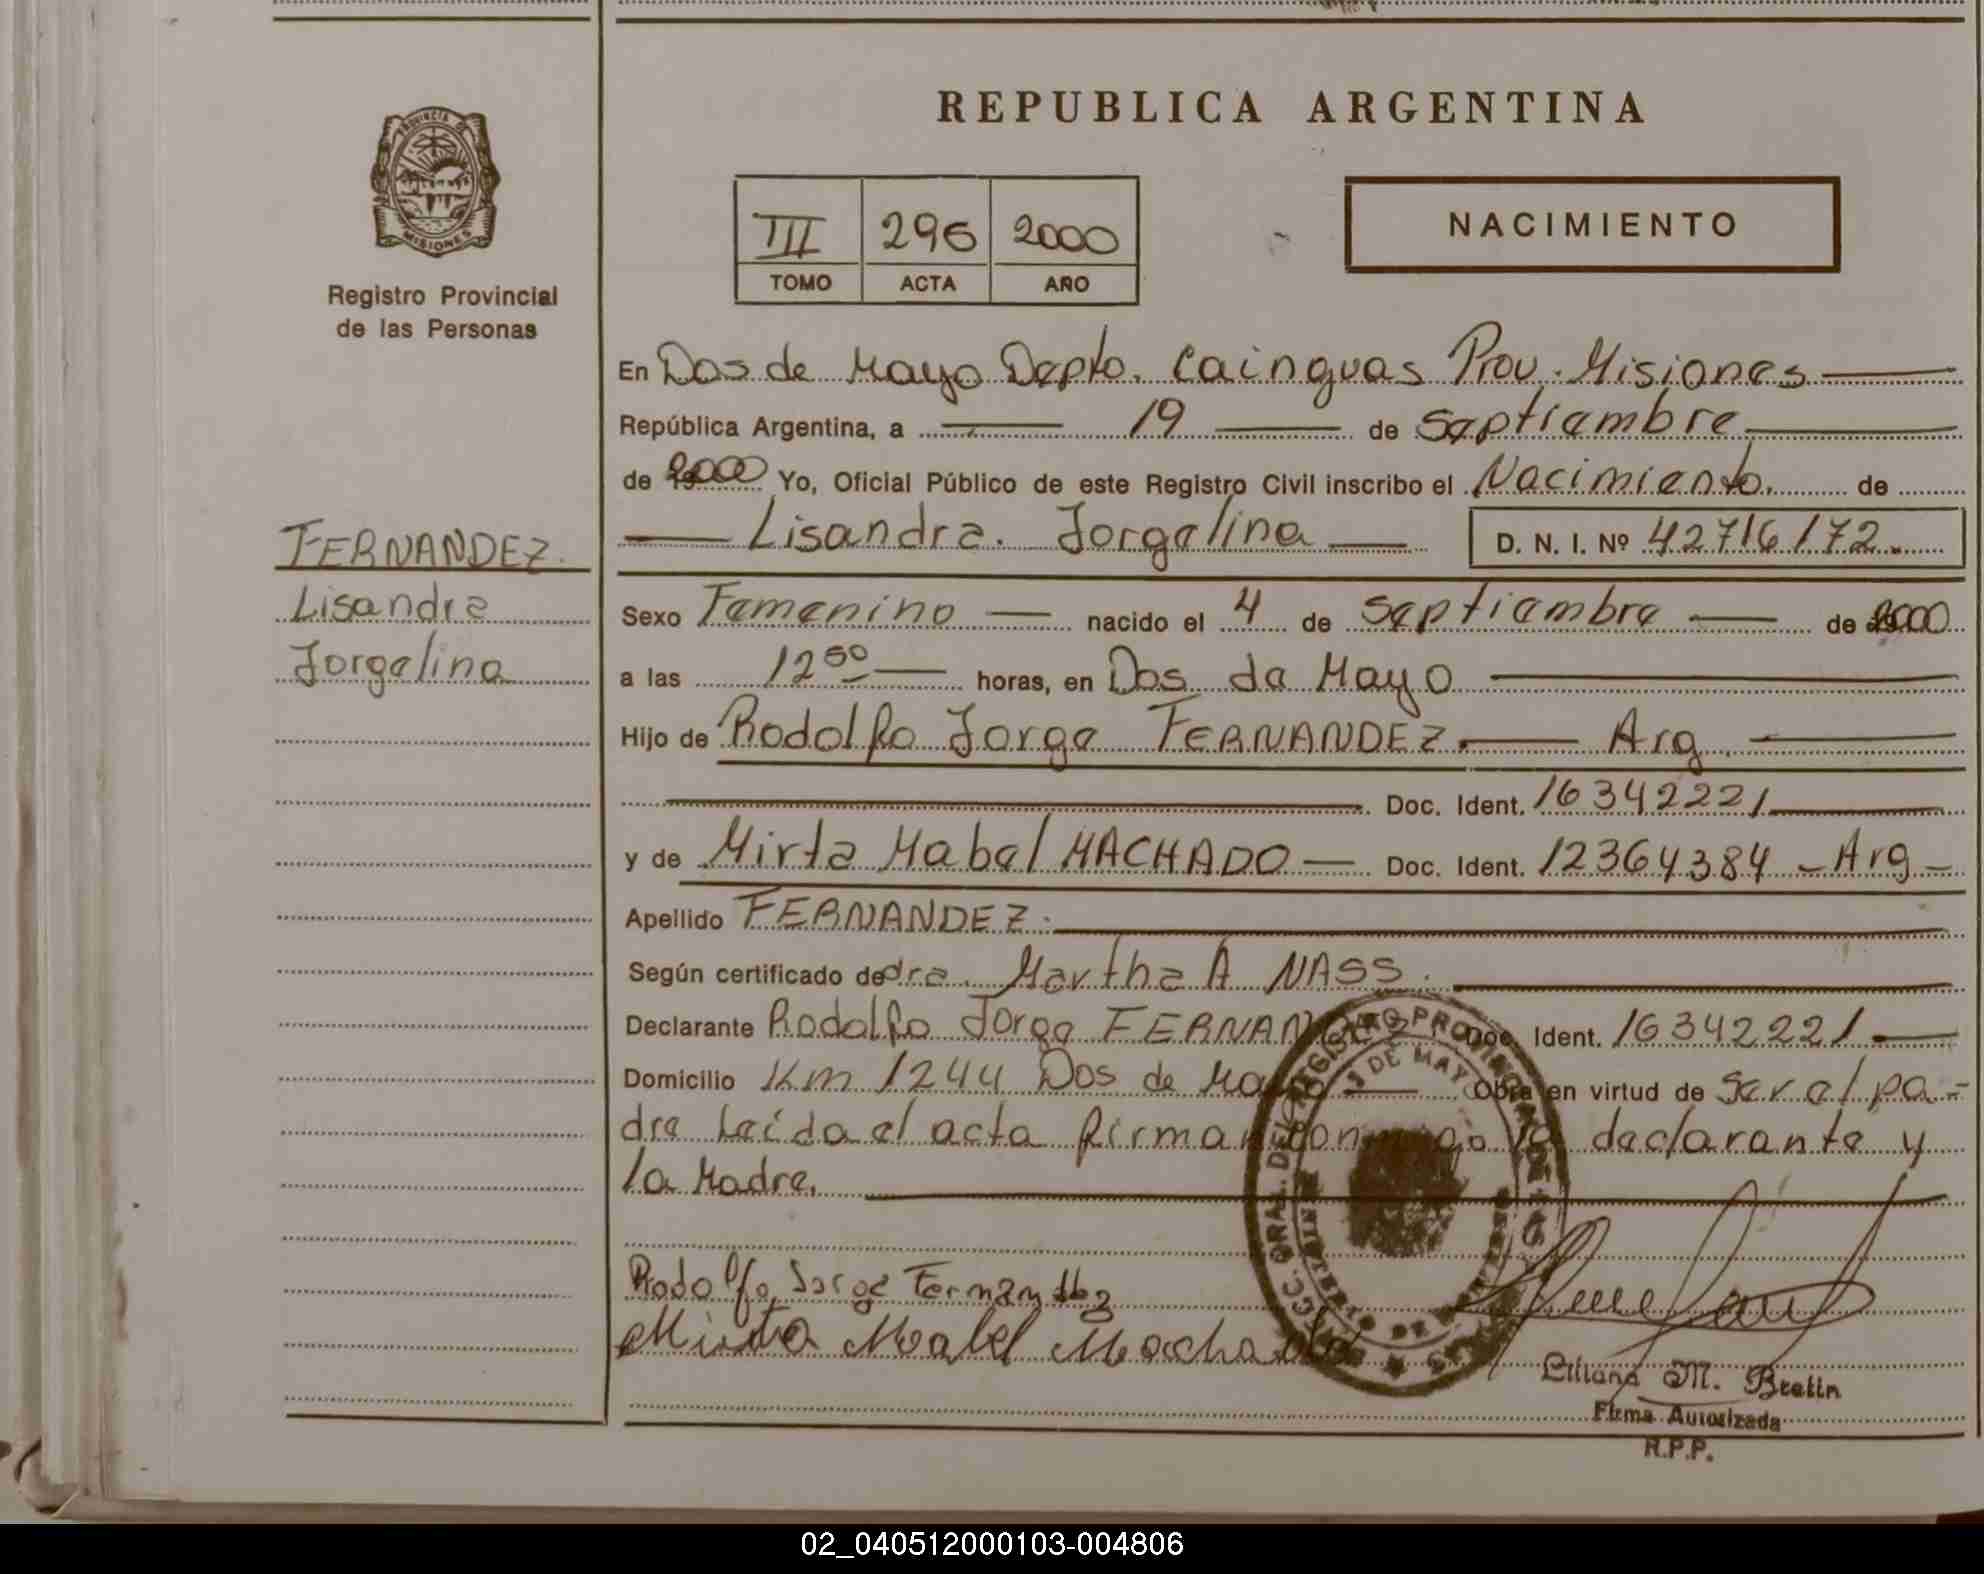 REPUBLICA ARGENTINA
PROVINCIA DE
MISIONES
Registro Provincial
de las Personas
III 296 2000
TOMO ACTA AÑO
NACIMIENTO
En Dos de Mayo Depto. Cainguas Prov. Misiones
República Argentina, a 19 de Septiembre
de 2000 Yo, Oficial Público de este Registro Civil inscribo el Nacimiento. de
Lisandra. Jorgelina D. N. I. Nº 42716172.
FERNANDEZ.
Lisandra
Jorgelina
Sexo Femenino nacido el 4 de Septiembre de 2000
a las 12 50 horas, en Dos de Mayo
Hijo de Rodolfo Jorge FERNANDEZ. Arg.
Doc. Ident. 16342221
y de Mirta Mabel MACHADO Doc. Ident. 12364384 - Arg -
Apellido FERNANDEZ.
Según certificado de dra. Martha A NASS.
Declarante Rodolfo Jorge FERNANDEZ Doc. Ident. 16342221
Domicilio Km 1244 Dos de Mayo Obra en virtud de Ser el pa-
dre Leída el acta firman conmigo el declarante y
la Madre.
Rodolfo Jorge Fernandez
Mirta Mabel Machado
Liliana M. Bretin
Firma Autorizada
R.P.P.
02_040512000103-004806